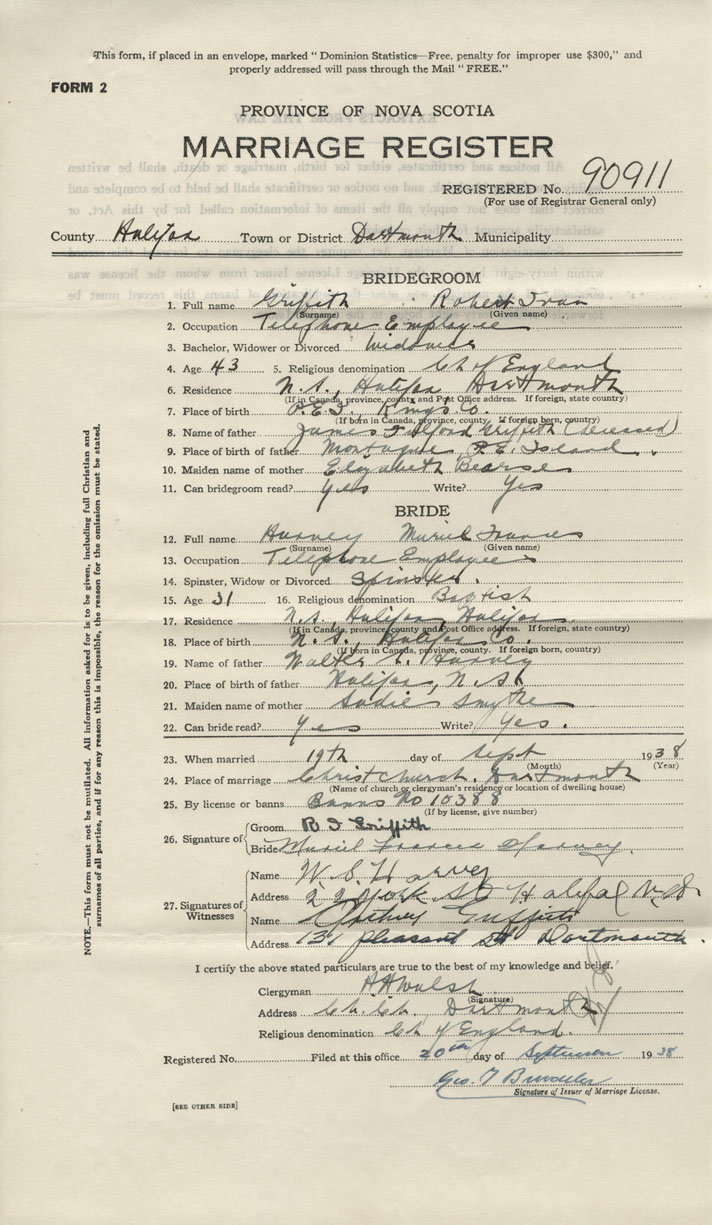 This form, if placed in an envelope, marked "Dominion Statistics—Free, penalty for improper use $300," and
properly addressed will pass through the Mail "FREE."
FORM 2
PROVINCE OF NOVA SCOTIA
MARRIAGE REGISTER
REGISTERED No. 90911
(For use of Registrar General only)
County Halifax Town or District Dartmouth Municipality
BRIDEGROOM
1. Full name Griffith Robert Ivan
(Surname) (Given name)
2. Occupation Telephone Employee
3. Bachelor, Widower or Divorced Widower
4. Age 43 5. Religious denomination Ch of England
6. Residence N.S., Halifax Dartmouth
(If in Canada, province, county and Post Office address. If foreign, state country)
7. Place of birth P.E.I. Kings Co.
(If born in Canada, province, county. If foreign born, country)
8. Name of father James Fulford Griffith (Deceased)
9. Place of birth of father Montague, P.E. Island.
10. Maiden name of mother Elizabeth Bearse
11. Can bridegroom read? Yes Write? Yes
BRIDE
12. Full name Harvey Muriel Frances
(Surname) (Given name)
13. Occupation Telephone Employee
14. Spinster, Widow or Divorced Spinster.
15. Age 31 16. Religious denomination Baptist
17. Residence N.S., Halifax, Halifax
(If in Canada, province, county and Post Office address. If foreign, state country)
18. Place of birth N.S., Halifax Co.
(If born in Canada, province, county. If foreign born, country)
19. Name of father Walter S. Harvey
20. Place of birth of father Halifax, N.S.
21. Maiden name of mother Sadie Smythe
22. Can bride read? Yes Write? Yes.
23. When married 19th day of Sept 1938
(Month) (Year)
24. Place of marriage Christ Church. Dartmouth
(Name of church or clergyman's residence or location of dwelling house)
25. By license or banns Banns No 10388
(If by license, give number)
26. Signature of
Groom R I Griffith
Bride Muriel Frances Harvey.
27. Signatures of Witnesses
Name W. S. Harvey
Address 22 York St Halifax N.S.
Name Griffith
Address 137 Pleasant St Dartmouth.
I certify the above stated particulars are true to the best of my knowledge and belief.
Clergyman Walsh
(Signature)
Address Ch. Ch. Dartmouth
Religious denomination Ch of England.
Registered No. Filed at this office 20th day of September 1938
Geo. T
Signature of Issuer of Marriage License.
[SEE OTHER SIDE]
NOTE.—This form must not be mutilated. All information asked for is to be given, including full Christian and
surnames of all parties, and if for any reason this is impossible, the reason for the omission must be stated.